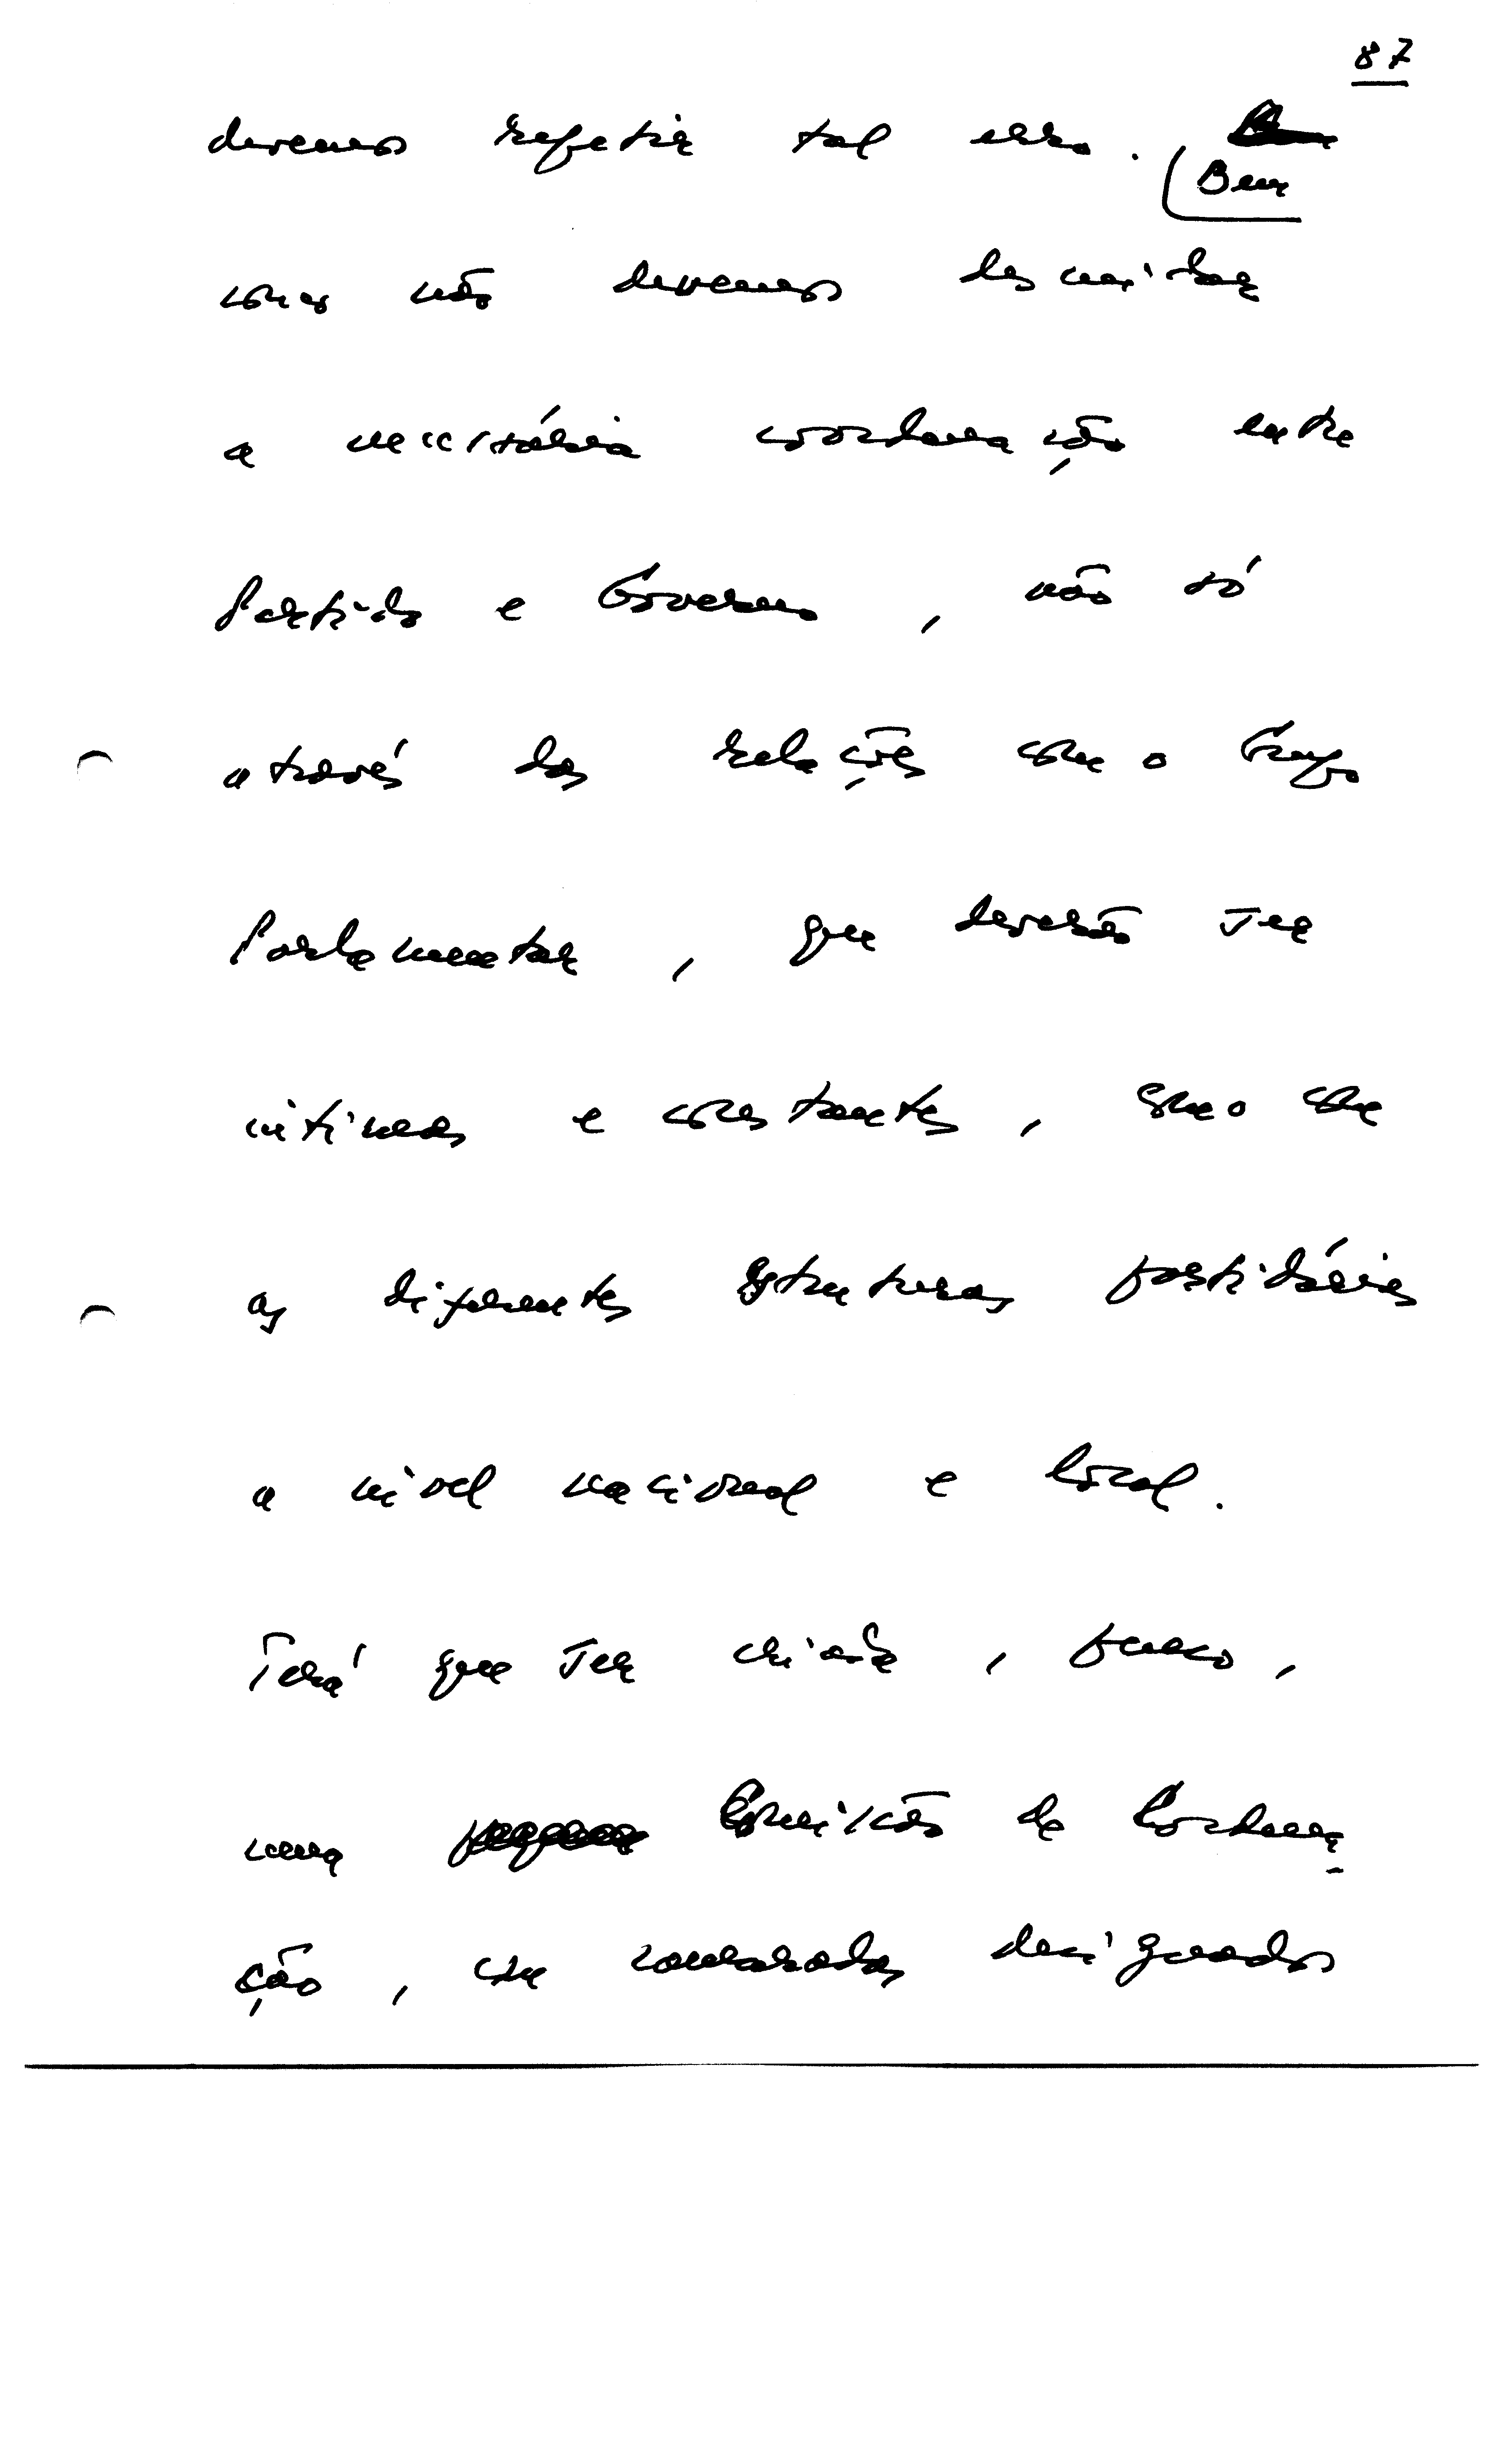 87
devemos repetir tal erro.
Bem
como não devemos descuidar
a necessária coordenação entre
Partido e Governo, não só
através das relações com o Grupo
Parlamentar, que deverão ser
íntimas e constantes, como com
as diferentes estruturas partidárias
a nível nacional e local.
Terá que ser criada,
uma Comissão de Coordena-
ção, com camaradas designados